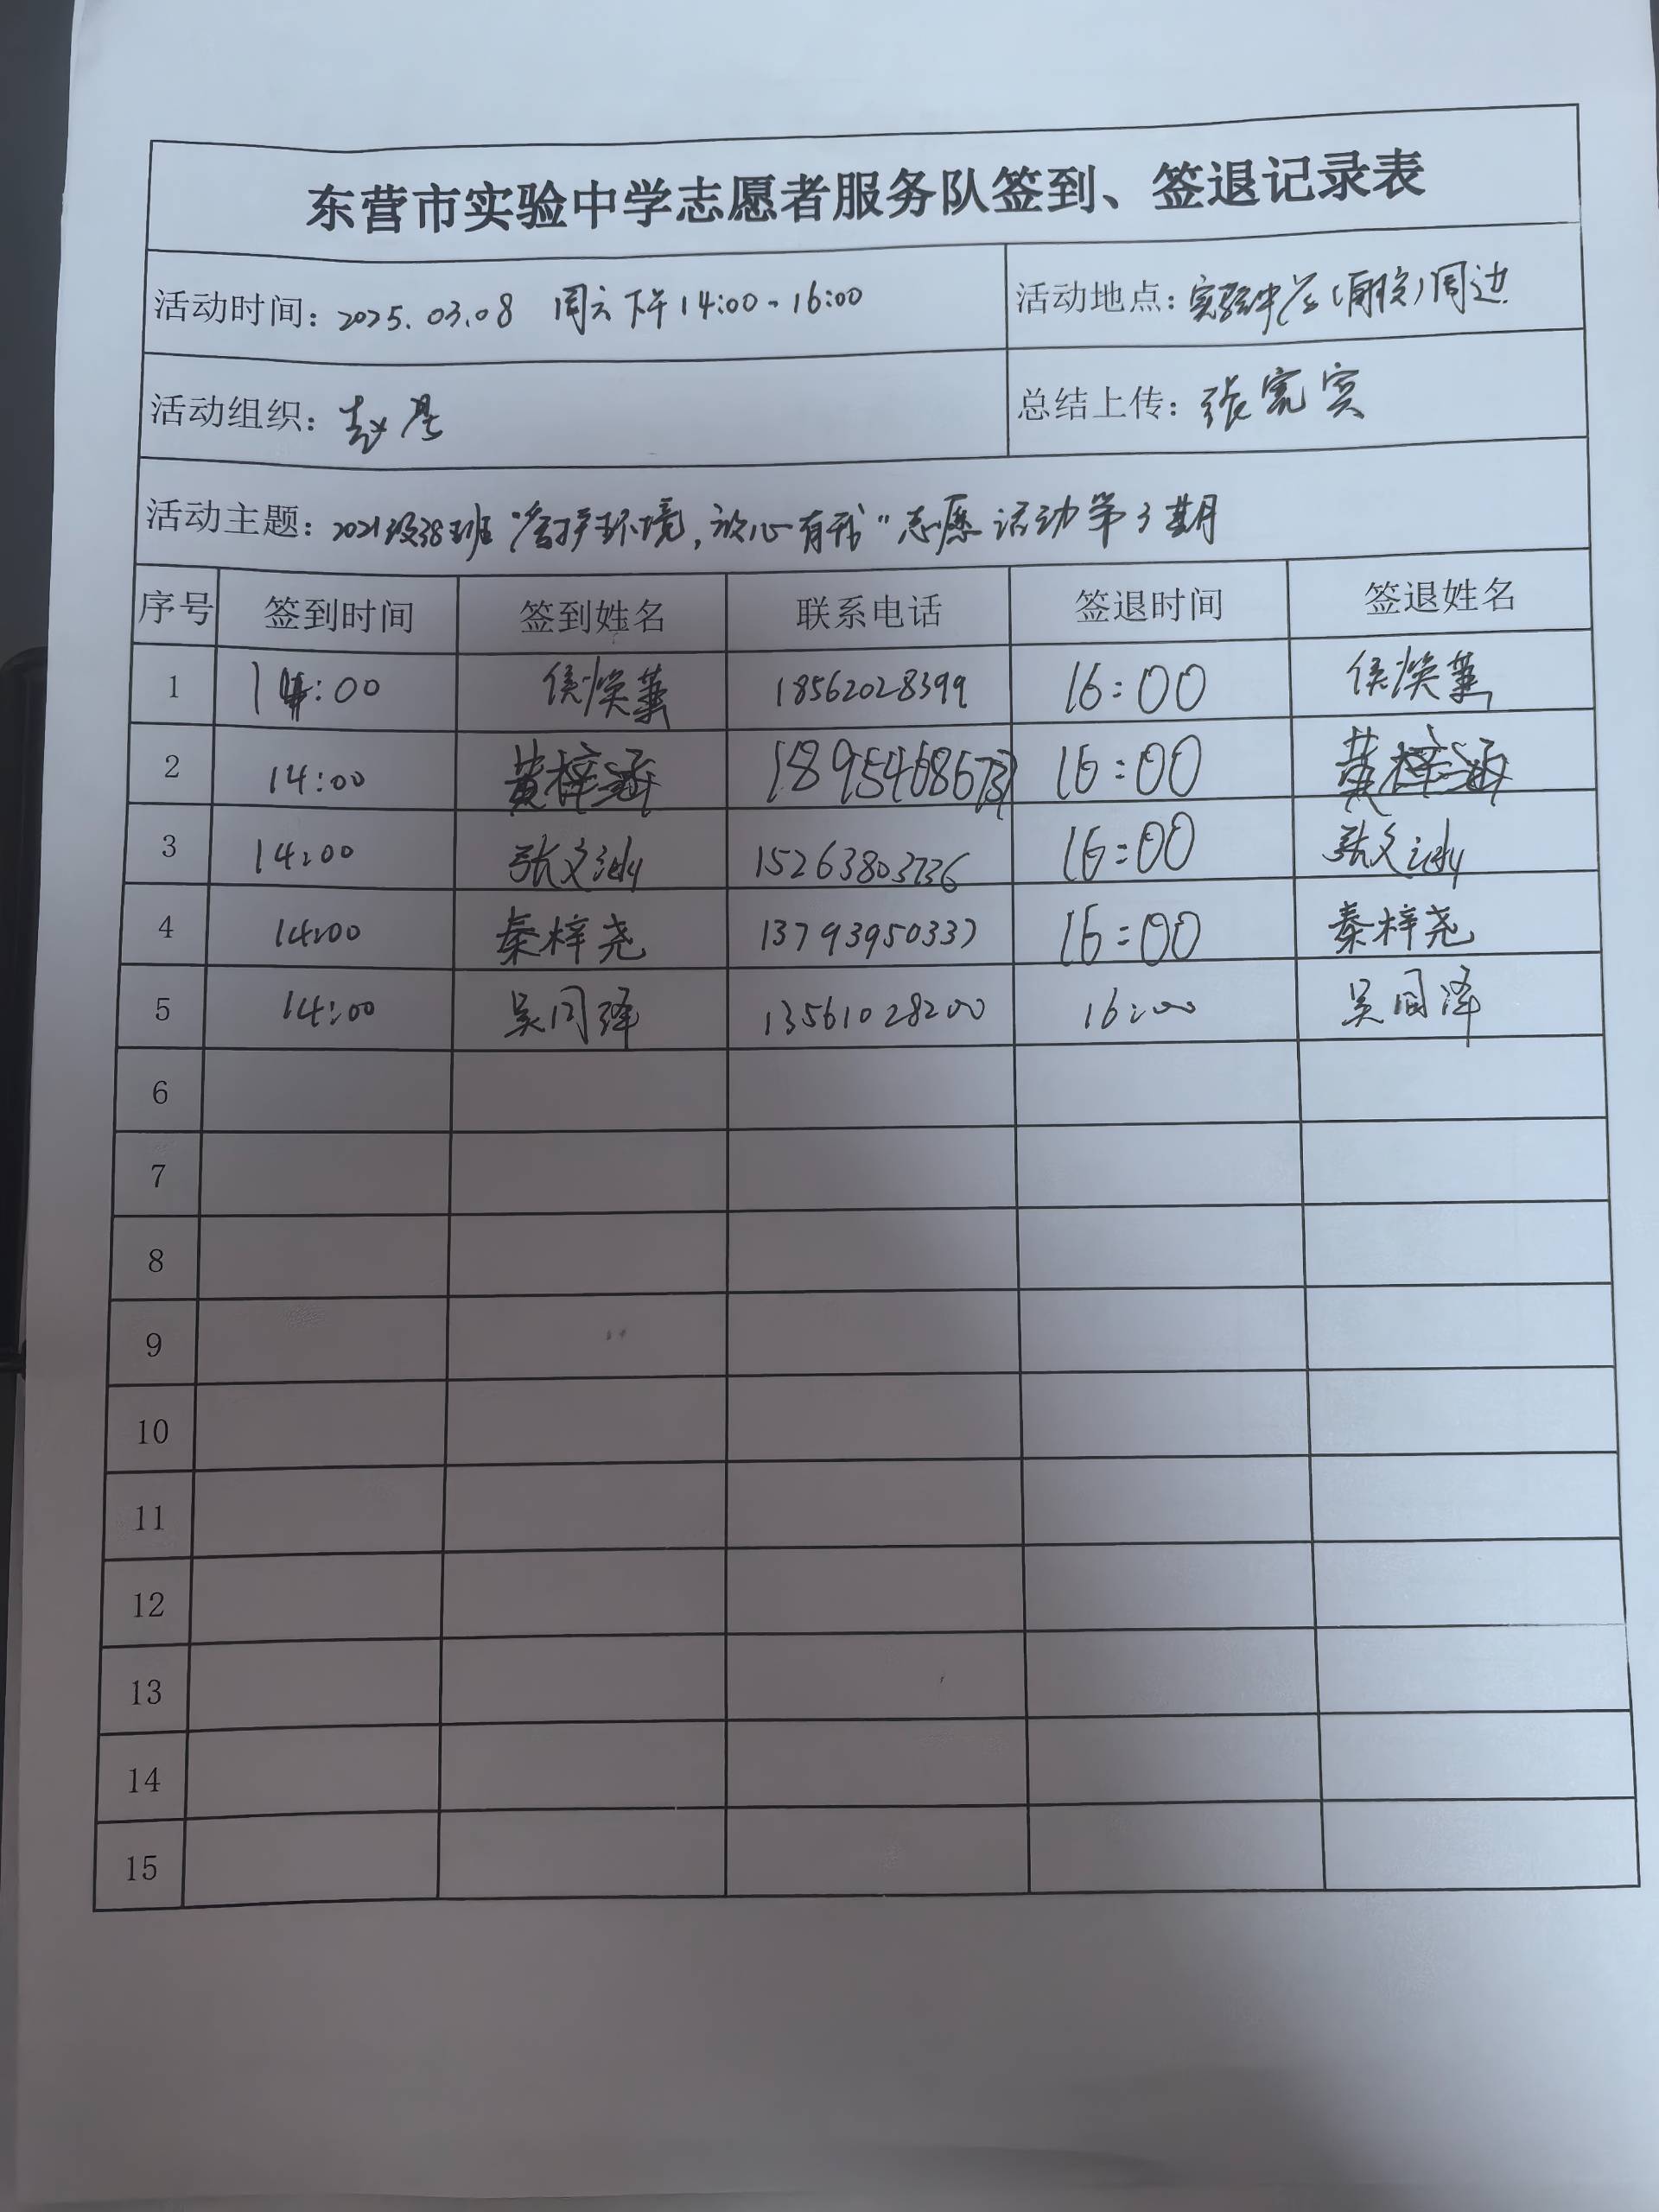 东营市实验中学志愿者服务队签到、签退记录表
活动时间：2025.03.08 周六下午14:00-16:00 活动地点：实验中学(南校)周边
活动组织：赵 总结上传：张宪宾
活动主题：2021级38班“ 环境，放心有我”志愿活动第3期
序号 签到时间 签到姓名 联系电话 签退时间 签退姓名
1 14:00 侯焕 18562028399 16:00 侯焕
2 14:00 黄梓涵 16:00 黄梓涵
3 14:00 张文 15263803736 16:00 张文
4 14:00 秦梓尧 13793950337 16:00 秦梓尧
5 14:00 吴同泽 13561028200 16:00 吴同泽
6
7
8
9
10
11
12
13
14
15